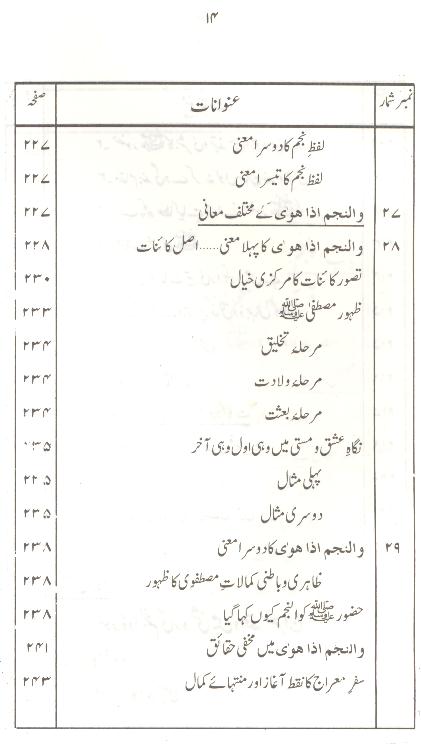 ۱۴
نمبر شمار عنوانات صفحہ
لفظِ نجم کا دوسرا معنی ۲۲۷
لفظِ نجم کا تیسرا معنی ۲۲۷
۲۷ والنجم اذا ھوی کے مختلف معانی ۲۲۷
۲۸ والنجم اذا ھوی کا پہلا معنی......اصل کائنات ۲۲۸
تصور کائنات کا مرکزی خیال ۲۳۰
ظہور مصطفیٰ ﷺ ۲۳۳
مرحلۂ تخلیق ۲۳۴
مرحلۂ ولادت ۲۳۴
مرحلۂ بعثت ۲۳۴
نگاہِ عشق و مستی میں وہی اول وہی آخر ۲۳۵
پہلی مثال ۲۲۵
دوسری مثال ۲۳۵
۲۹ والنجم اذا ھوی کا دوسرا معنی ۲۳۸
ظاہری و باطنی کمالاتِ مصطفوی کا ظہور ۲۳۸
حضور ﷺ کو النجم کیوں کہا گیا ۲۳۸
والنجم اذا ھوی میں مخفی حقائق ۲۴۱
سفرِ معراج کا نقطۂ آغاز اور منتہائے کمال ۲۴۳